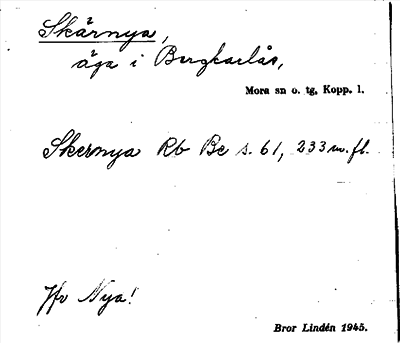 Skärnya,
äga i Bergkarlås,
Mora sn o. tg, Kopp. l.
Skernya Rb Bc s. 61, 233 m. fl.
Jfv Nya!
Bror Lindén 1945.